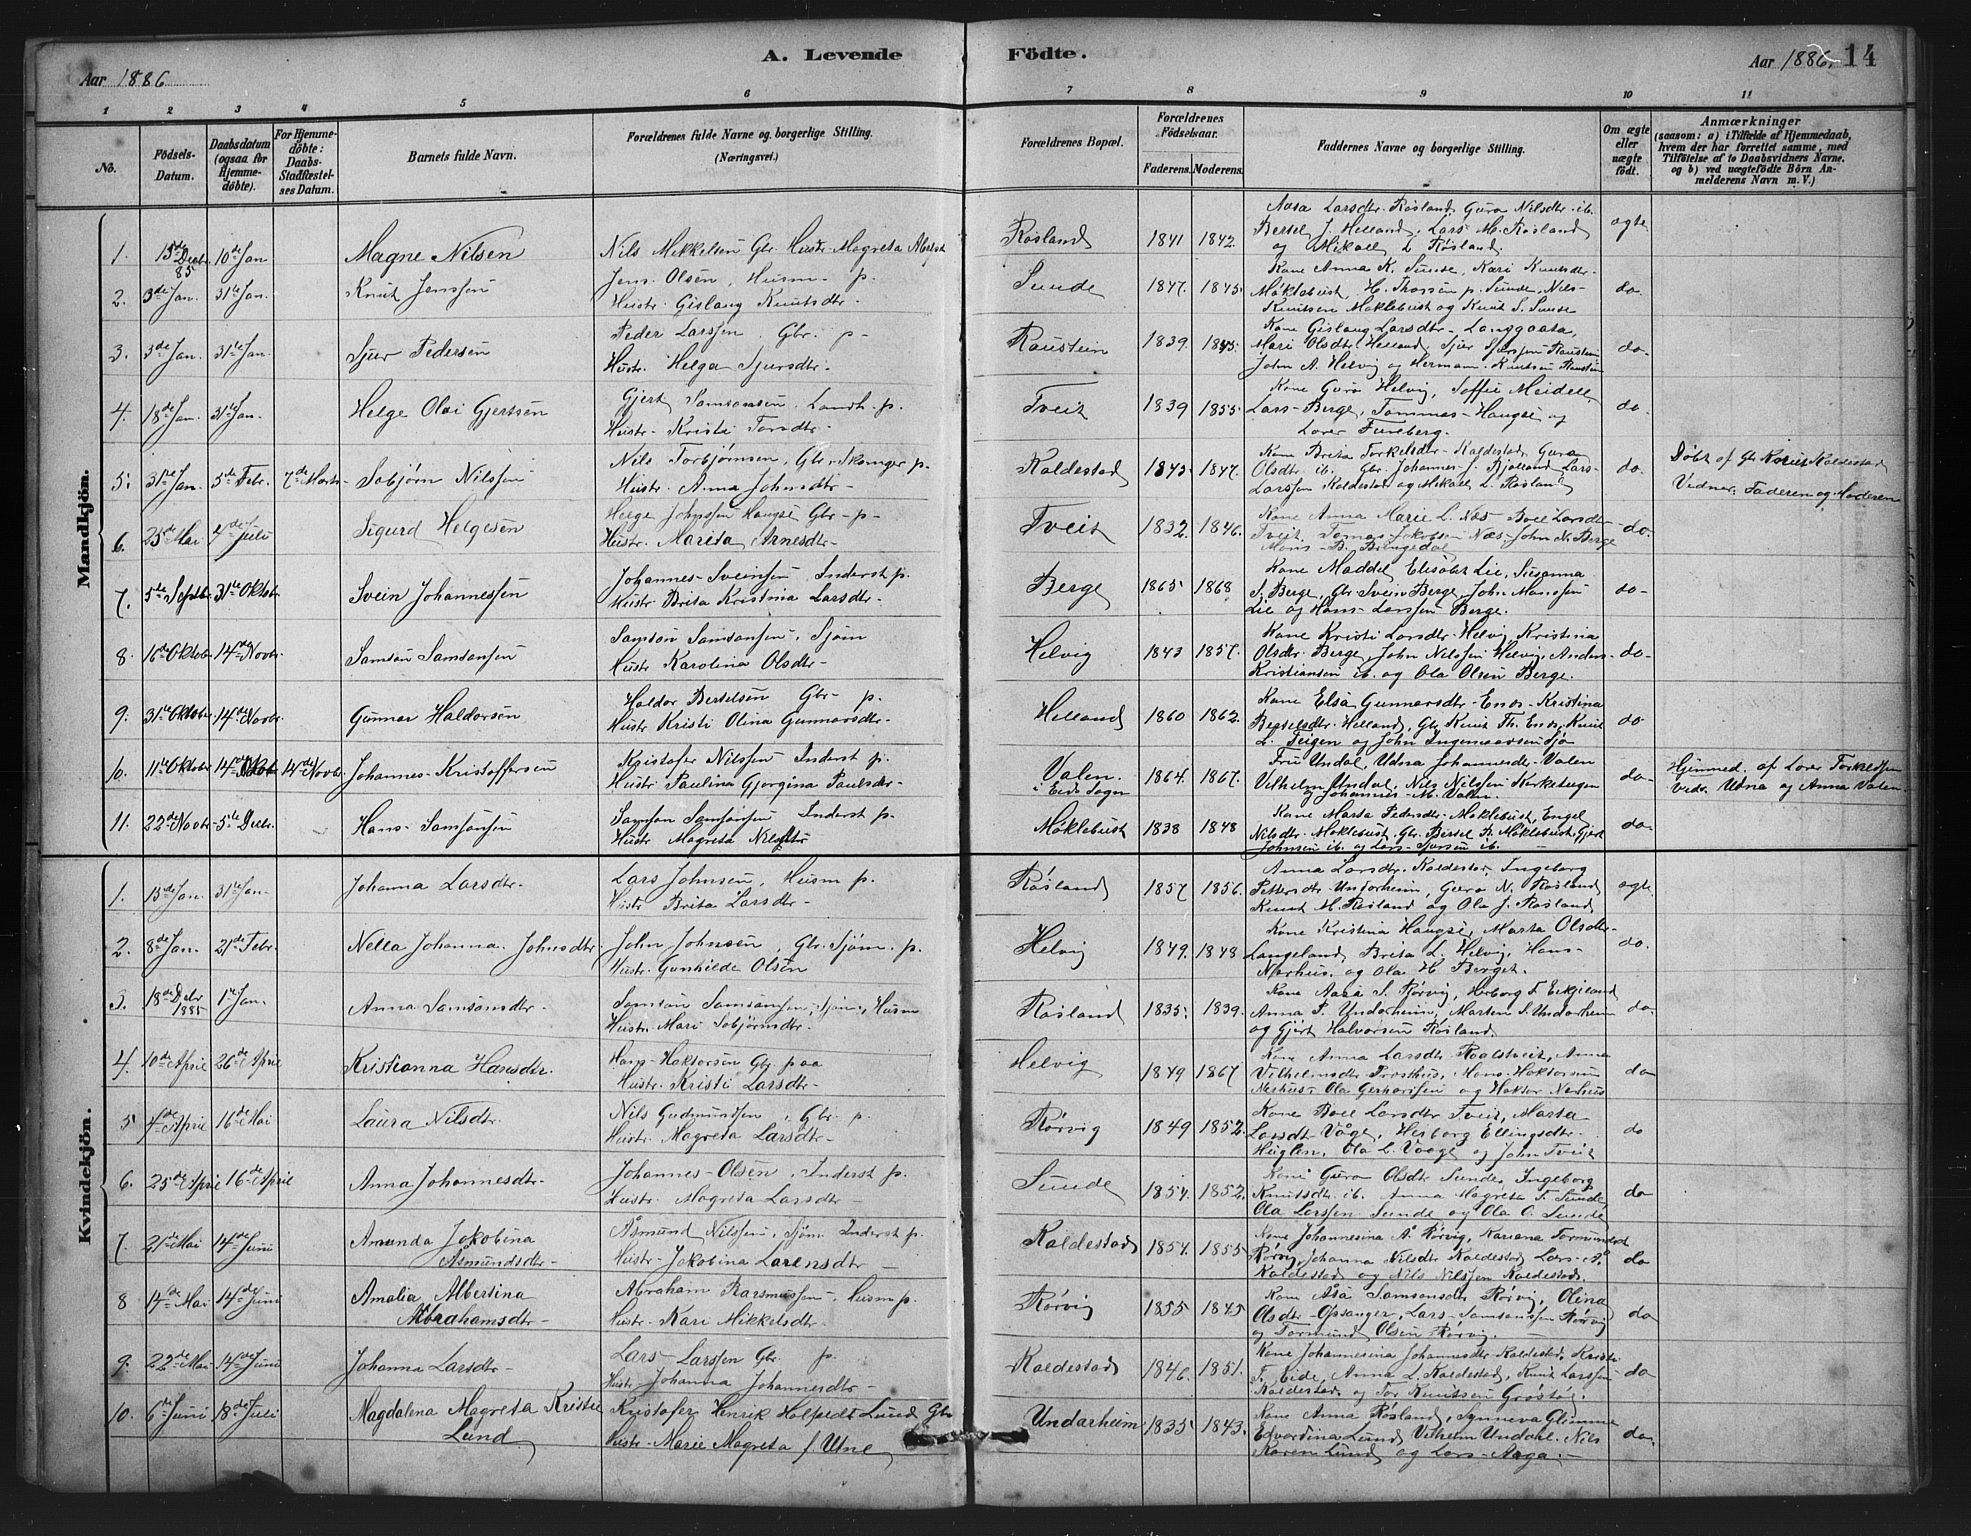 A. Levende Födte.
Aar 1886
Aar 1886. 14
1 2 3 4 5 6 7 8 9 10 11
No.
Födsels-Datum.
Daabsdatum (ogsaa for Hjemme-döbte).
For Hjemme-döbte: Daabs-Stadfæstel-ses Datum.
Barnets fulde Navn.
Forældrenes fulde Navne og borgerlige Stilling. (Næringsvei.)
Forældrenes Bopæl.
Forældrenes Födselsaar.
Faderens. Moderens.
Faddernes Navne og borgerlige Stilling.
Om ægte eller uægte födt.
Anmærkninger
(saasom: a) i Tilfælde af Hjemmedaab, hvem der har forrettet samme, med Tilföielse af to Daabsvidners Navne, og b) ved uægtefödte Börn An-melderens Navn m. V.)
Mandkjön.
1. 15de Decbr 85 10de Jan Magne Nilsen
Nils Mikkelsen Gbr. Hustr. Magreta
Røsland 1841 1842.
Aasa Larsdtr. Røsland, Guro Nilsdtr. ib.
Bertel J. Helland, Lars M. Røsland
og Mikael L. Røsland.
ægte
2. 3de Jan. 31te Jan. Knut Jenssen
Jens Olsen, Husm. p.
Hustr. Gislaug Knutsdtr.
Sunde 1847. 1845.
Kone Anna K. Sunde, Kari Knutsdtr.
Møklebust, H. Thossen p. Sunde, Nils
Knutsen Møklebust og Knut S. Sunde
do.
3. 3de Jan. 31te Jan. Sjur Pedersen
Peder Larssen, Gbr. p.
Hustr. Helga Sjursdtr.
Raustein 1839. 1845.
Kone Gislaug Larsdtr. Langgaata,
Mari Olsdtr. Helland, Sjur Sjurssen Raustein
John A. Helvig og Herman Knutsen Raustein
do.
4. 18de Jan. 31te Jan. Helge Olai Gjertsen
Gjert Samsonsen. Landh. p.
Hustr. Kristi Torsdtr.
Tveit 1839 1855.
Kone Guro Helvig, Soffie Meidell,
Lars Berge, Tommas Haugse og
Fureberg.
do.
5. 31te Jan. 5te Febr. 7de Marts Sobjørn Nilssen
Nils Torbjørnsen, Gbr. Skomager p.
Hustr. Anna Johnsdtr.
Kaldestad 1843. 1847.
Kone Brita Torkelsdtr. Kaldestad, Guro
Olsdtr. ib. Gbr. Johannes J. Bjelland Lars
Larssen Kaldestad og Mikael L. Røsland
do.
Døbt af Gbr. Kaldestad
Vidner: Faderen og Moderen
6. 25de Mai 4de Juli Sigurd Helgesen
Helge Johnssen Haugse Gbr. p.
Hustr. Mareta Arnesdtr.
Tveit 1832. 1846.
Kone Anna Marie L. Næs Boel Larsdtr.
Tveit. Tomas Jakobsen Næs. John N. Berge
Mons B. Bringedal
do.
7. 5te Septbr. 31te Oktobr. Svein Johannessen
Johannes Sveinsen Inderst p.
Hustr. Brita Kristina Larsdtr.
Berge 1865 1868
Kone Maddel Elisabet Lie, Susanna
S. Berge, Gbr. Svein Berge, John Monssen
Lie og Hans Larssen Berge.
do.
8. 16de Oktobr. 14de Novbr. Samson Samsonsen
Samson Samsonsen, Sjøm
Hustr. Karolina Olsdtr.
Helvig 1843 1857.
Kone Kristi Larsdtr. Helvig, Kristina
Olsdtr. Berge, John Nilssen Helvig, Anders
Kristiansen ib. og Ola Olsen Berge.
do.
9. 31te Oktobr. 14de Novbr. Gunnar Haldorsen
Haldor Bertelsen Gbr. p.
Hustr. Kristi Olina Gunnarsdtr.
Helland 1860 1862.
Kone Elsa Gunnarsdtr. Enes Kristina
Bertelsdtr. Helland, Gbr. Knut Th. Enes, Knut
L. Teigen og John Ingemaarsen Sjo
do
10. 11te Oktobr. 14de Oktb. 14de Novbr. Johannes Kristoffersen
Kristofer Nilssen Inderst p.
Hustr. Paulina Gjorgina Paulsdtr.
Valen i Eids Sogn 1864. 1867.
Fru Undal, Udna Johannesdr. Valen
Vilhelm Undal, Nils Nilssen
og Johannes M. Valen.
do.
Hjemmed. af Torkelsen
Vidr. Udna og Anna Valen.
11. 22de Novbr. 5te Decbr. Hans Samsonsen
Samson Samsonsen Inderst p.
Hustr. Magreta Nilsdtr
Møklebust 1838 1848
Kone Marta Pedersdtr. Møklebust, Engel
Nilsdtr. Møklebust. Gbr. Bertel Møklebust, Gjert
Johnsen ib. og Lars Sjursen ib.
do.
Kvindekjön.
1. 15de Jan. 31te Jan. Johanna Larsdtr.
Lars Johnsen, Husm p.
Hustr. Brita Larsdtr.
Røsland 1857 1856.
Anna Larsdtr. Kaldestad, Ingeborg
Pettersdtr Undarheim, Guro N. Røsland
Knut M. Røsland og Ola J. Røsland
ægte
2. 8de Jan. 21de Febr. Nella Johanna Johnsdtr.
John Johnsen, Gbr. Sjøm. p.
Hustr. Gunhilde Olsen
Helvig 1849. 1848
Kone Kristina Haugse, Marta Olsdtr.
Langeland Brita L. Helvig, Hans
Nerhus. og Ola H. Berget.
do.
3. 18de Debr 1885 1te Jan. Anna Samsonsdtr.
Samson Samsonsen, Sjøm, Husm
Hustr. Mari Sobjørnsdtr.
Røsland 1835. 1839.
Kone Aasa S. Rørvig, Herborg F. Eikjeland
Anna P. Undarheim, Marten S. Undarheim
og Gjert Halvorsen Røsland.
do.
4. 10de April 26de April Kristianna Hansdtr.
Hans Haktorsen Gbr. paa
Hustr. Kristi Larsdtr.
Helvig 1849 1867
Kone Anna Larsdtr. Anna
Vilhelmsdtr. Hans Haktorsen
Nerhus. Ola Gerhardsen og Haktor Nerhus
do
5 4de April 16de Mai Laura Nilsdtr.
Nils Gudmundsen, Gbr. p.
Hustr. Magreta Larsdtr.
Rørvig 1849 1852.
Kone Boel Larsdtr Tveit, Marta
Larsdtr Våge, Herborg Ellingsdtr.
Huglen, Ola L. Vaage og John Tveit
do
6. 25de April 16de April Anna Johannesdtr.
Johannes Olsen, Inderst p.
Hustr. Magreta Larsdtr.
Sunde 1854. 1852.
Kone Guro Olsdtr Sunde, Ingeborg
Knutsdtr ib. Anna Magreta T. Sunde
Ola Larssen Sunde og Ola O. Sunde
do
7. 21de Mai 14de Juni Amunda Jakobina Åsmundsdtr.
Åsmund Nilssen, Sjøm. Inderst p.
Hustr. Jakobina Larensdtr
Kaldestad 1854. 1855
Kone Johannesina A. Rørvig, Mariana Tormundsd
Rørvig, Johanna Nilsdtr Kaldestad Lars A.
Kaldestad og Nils Nilssen Kaldestad.
do
8 14de Mai 14de Juni Amalia Albertina Abrahamsdtr.
Abraham Rasmussen, Husm p.
Hustr. Kari Mikkelsdtr.
Rørvig 1855 1845
Kone Åsa Samsonsdtr Rørvig, Olina
Olsdtr Opsanger, Lars Samsonssen Rørvig
og Tormund Olsen Rørvig.
do
9. 22de Mai 14de Juni Johanna Larsdtr.
Lars Larssen Gbr. p.
Hustr. Johanna Johannesdtr.
Kaldestad 1846. 1851.
Kone Johannesina Johannesdtr Kaldestad, Kristi
F. Eide, Anna L. Kaldestad, Knut Larssen
Kaldestad. og Tor Knutsen
do
10. 6te Juni 18de Juli Magdalena Magreta Kristie Lund
Kristofer Henrik Holfeldt Lund Gbr
Hustr. Marie Magreta f. Utne
Undarheim 1835 1843.
Kone Anna Røsland, Synneva Glimme
Edvardina Lund Vilhelm Undahl. Nils
Lund og Lars Aaga.
do.